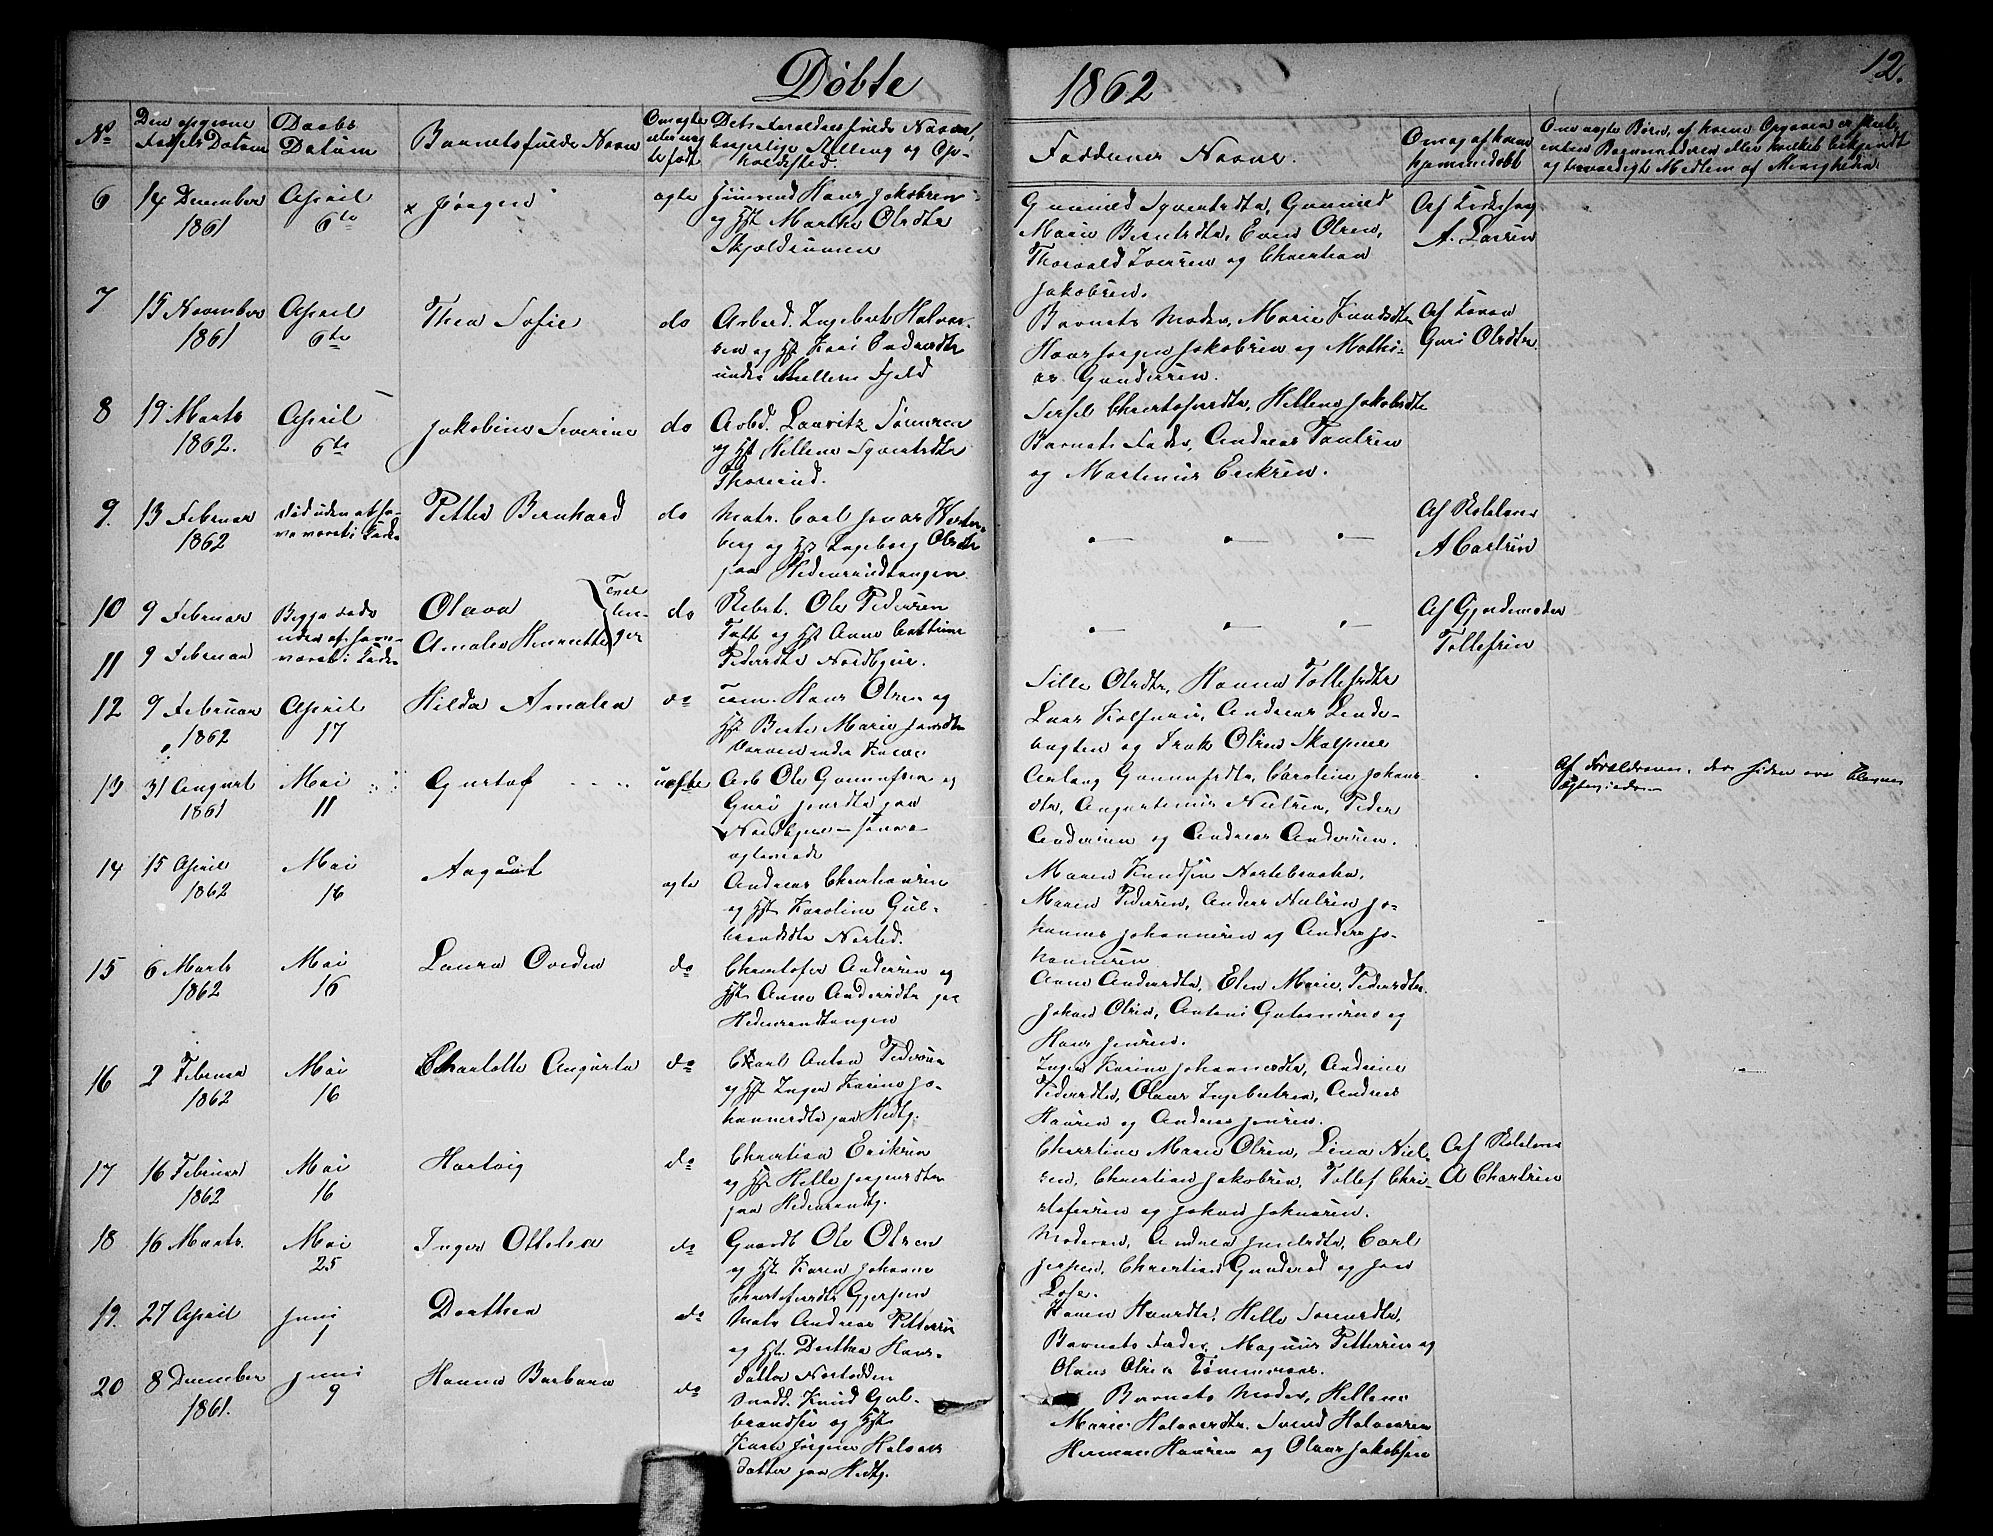 Døbte 1862
12.
No
Den opgivne
Fødsels Datum
Daabs
Datum
Barnets fulde Navn
Om ægte
eller uæg
te født
Dets Forældres fulde Navne,
borgerlige Stilling og Op-
holdssted.
Faddernes Navne.
Om og af hvem
hjemmedøbt
Om uægte Børn, af hvem Opgaven er skeet
og troværdigt Medlem af Menigheden
6
14 December
1861
April
6te
x Jørgen
ægte
Huusmd Hans Jakobsen
og Hst Marthe Olsdtr
Gunnild Syvertsdtr, Gunnild
Marie Berntsdtr, Even Olsen,
Thorvald Iversen og Christian
Jakobsen.
Af Kirkesang
A. Larsen
7
15 November
1861
April
6te
Thea Sofie
do
Arbeid. Ingebret Halvor-
sen og Hst Kari
under Mellem Fjeld
Barnets Moder, Marie Knudsdtr
Hans Jørgen Jakobsen og Mathi-
as Gundersen.
Af Konen
Guri Olsdtr
8
19 Marts
1862.
April
6te
Jakobine Severine
do
Arbd. Lauritz Simensen
og Hst Hellene Syvertsdtr
Thorsrud.
Sissel Christofersdtr, Hellene Jakobsdtr
Barnets Fader, Andreas Paulsen
og Martinus Eriksen.
9.
13 Februar
1862
død uden at ha-
ve været i Kirke
Petter Bernhard
do
Matr. Carl Jonas Wester-
berg og Hst Ingeborg Olsdtr
paa Hedensrudtangen.
Af Skolelærer
A Carlsen
10
9 Februar
Begge døde
uden at have
været i Kirke
Olava
Tvil
lin-
ger
do
Skibst. Ole Pedersen
Toft og Hst Anne Cathrine
Pedersdtr Nordbyen.
Af Gjordemoder
Tollefsen
11
9 Februar
Amalia Henriette
12
9 Februar
1862
April
17
Hilda Amalia
do
Tøm. Hans Olsen og
Hst Berte Marie Jensdtr
Sille Olsdtr, Hanna Tollefsdtr
Lars Kolsrud, Andreas Linde-
bugten og Isak Olsen
13
31 August
1861
Mai
11
Gustaf
uægte
Arb Ole Gunnufsen og
Guro Jensdtr paa
Nordbyen
Aslaug Gunnufsdtr, Caroline Johans
dtr, Augustinus Nielsen, Peder
Andersen og Andreas Andersen.
Af Forældrene, der siden ere blevne
Ægteviede
14
15 April
1862
Mai
16
August
ægte
Andreas Christiansen
og Hst Karoline Gul-
brandsdtr Nersted.
Maren Knudsen Nordebraaten,
Maren Pedersen, Anders Nielsen Jo-
hannes Johannesen og Anders Jo-
hannesen
15
6 Marts
1862
Mai
16
Laura Ovedia
do
Christofer Andersen og
Hst Anne Andersdtr paa
Hedensrudtangen
Anne Andersdtr, Elen Marie Pedersdtr
Johan Olsen, Antoni Gutormsen og
Hans Jensen.
16
2 Februar
1862
Mai
16
Charlotte Augusta
do
Charl Anton Pedersen
og Hst Inger Karine Jo-
hannesdtr paa Hedtg.
Inger Karine Johannesdtr, Andrine
Pedersdtr, Olaus Ingebretsen, Andreas
Hansen og Andreas Jensen.
17
16 Februar
1862
Mai
16
Hartvig
do
Christian Eriksen
og Hst Helle Jørgensdtr
paa Hedensrudtg.
Christine Maren Olsen, Lina Niel-
sen, Christian Jakobsen, Tollef Chri-
stofersen og Johan Johnsen.
Af Skolelærer
A Charlsen
18
16 Marts.
Mai
25
Inger Ottelia
do
Gaardb Ole Olsen
og Hst Karen Johanne
Christofersdtr Gjerpen
Moderen, Andrea Jensdtr, Carl
Jespen, Christian Gunderød og Jens
Lofe.
19.
27 April
Juni
1
Dorthea
do
Matr Andreas Pettersen
og Hst. Dorthea Hans-
datter Nortodden
Karen Hansdtr, Helle Simensdtr,
Barnets Fader, Magnus Pettersen og
Olaus Olsen Tømmeraas.
20
8 December
1861.
Juni
9
Hanna Barbara
do
Snedk. Knud Gul-
brandsen og Hst
Karen Jørgine Halvors
datter paa Hedtg.
Barnets Moder, Hellene
Marie Halvorsdtr. Svend Halvorsen
Herman Hansen og Olaus Jakobsen